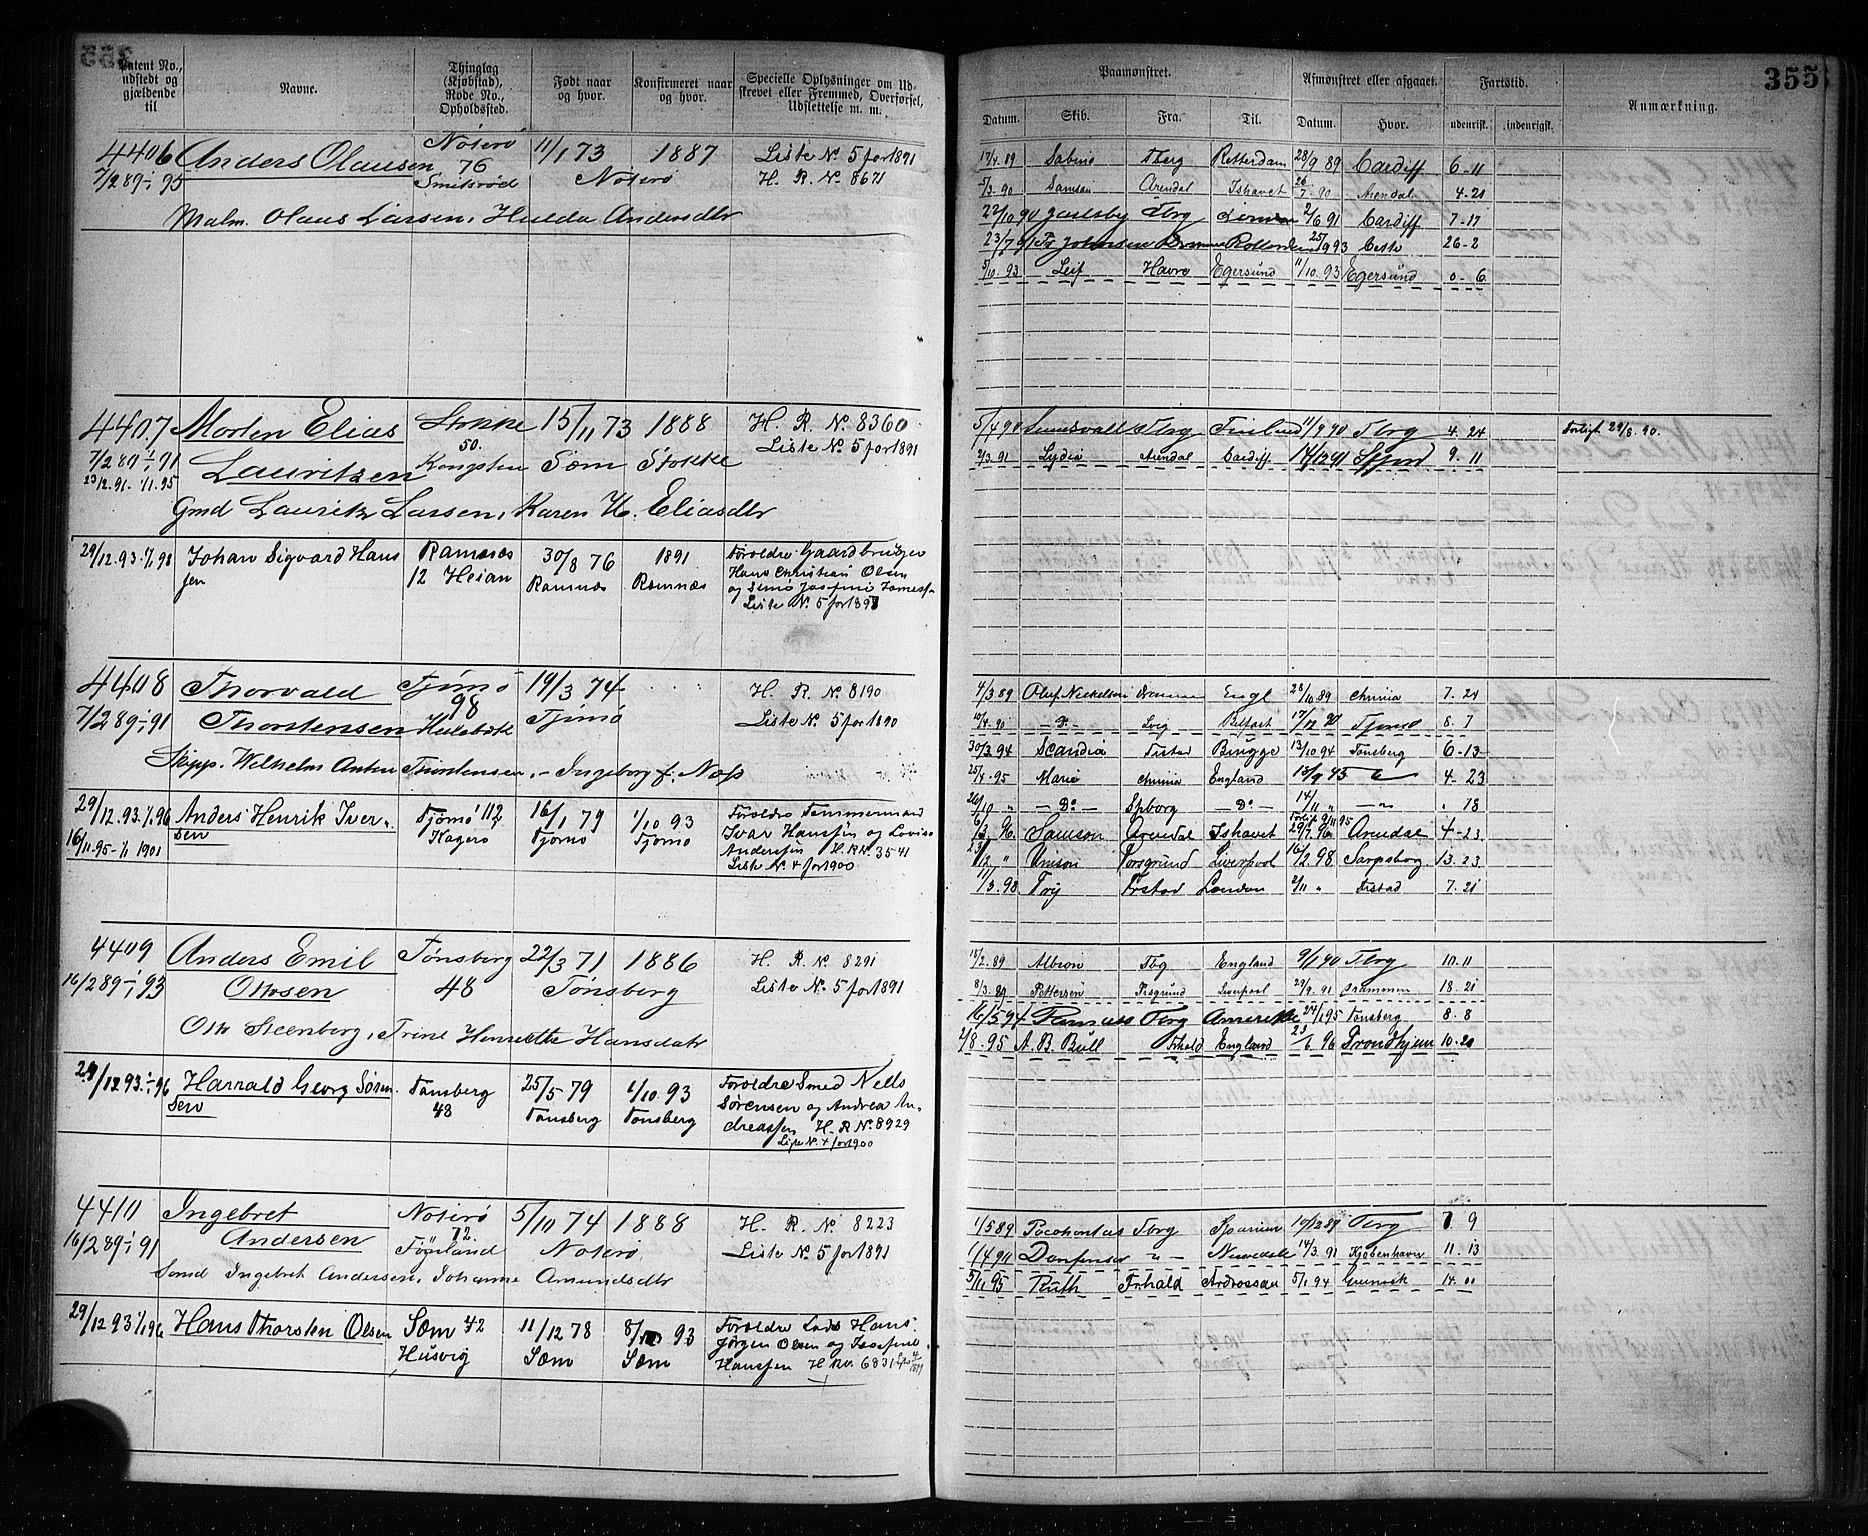 355
Patent No., udstedt og gjældende til
Navne.
Thinglag (Kjøbstad), Rode No., Opholdssted.
Født naar og hvor.
Konfirmeret naar og hvor.
Specielle Oplysninger om Udskrevet eller Fremmed, Overførsel, Udslettelse m. m.
Paamønstret.
Afmønstret eller afgaaet.
Fartstid.
Anmærkning.
Datum. Skib. Fra. Til. Datum. Hvor. udenrigsk. indenrigsk.
4406 Anders Olausen Nøterø 11/1 73 1887 Liste No. 5 for 1891
7/2 89-1/1 95 76 Smidsrød Nøterø H. R. No. 8671
Matr. Olaus Larsen, Hulda Andersdtr
17/4. 89 Sabino Tbrg Rotterdam 28/9 89 Cardiff 6-11
5/3. 90 Samson Arendal Ishavet 26/7. 90 Arendal 4-21
22/10 90 Jarlsby Tbrg 2/6 91 Cardiff 7-17
23/7 91 Fr Johnsen 25/9 93 Cette 26-2
5/10. 93 Leif Havre Egersund 11/10. 93 Egersund 0-6
4407 Morten Elias Stokke 15/11 73 1888 H. R. No. 8360
7/2 89-1/1 91 50. Liste No. 5 for 1891
23/12. 91. 1/1. 95 Lauritsen Sæm Stokke
Gmd Lauritz Larsen, Karen H. Eliasdtr
5/4 90 Sundsvall Tbrg Finland 11/9 90 Tbrg 4. 24 Forligt 29/8. 90.
2/3. 91 Lydia Arendal Cardiff 14/12 91 Sfjord 9. 11
29/12. 93. 1/1 98 Johan Sigvard Hansen Ramnæs 30/8 76 1891 Forældre Gaardbruger
12 Heian Ramnæs Ramnæs Hans Christian Olsen
Liste No. 5 for 1897
4408 Thorvald Tjømø 19/3 74 H. R. No. 8190
7/2 89-1/1 91 Thorstensen 98 Hulebæk Tjømø Liste No. 5 for 1890
Skipp. Wilhelm Anton Thorstensen, Ingeborg f. Næss
4/3 89 Oluf Nickelsen Drammen Engl 28/10 89 Chrnia 7. 24
10/4. 90 -Do- Lvig Belfast 17/12 90 Tjømø 8. 7
30/3. 94 Scandia Frstad Brügge 13/10 94 Tønsberg 6-13
25/4-95 Marie Chrnia England 4-23
26/10 " -Do- Spborg -Do- 14/11 " -"- " 18
6/3. 96 Samson Arendal Ishavet 29/7. 96 Arendal 4-23
23/12 " Union Porsgrund Liverpool 16/2. 98 Sarpsborg 13. 23
17/3. 98 Frstad London 2/11 " Frstad 7. 21
29/12. 93. 1/1 96 Anders Henrik Iver- Tjømø 112 16/1 79 1/10 93 Forældre Tømmermand
16/11. 95-1/1 1901 sen Kagerø Tjømø Tjømø Ivar Hanssen og Lovise
Anderssen H. R. No. 3541
Liste No. 4 for 1900
4409 Anders Emil Tønsberg 22/3 71 1886 H. R. No. 8291
16/2 89-1/1 93 Ottosen 48 Tønsberg Liste No. 5 for 1891
Otto Steenberg, Trine Henriette Hansdatr
18/2. 89 Albion Tbg England 9/1 90 Tbrg 10. 11
8/3. 89 Pettersen Prsgrund Liverpool 29/9. 91 Drammen 18. 21
16/5 94 Tbrg Amerika 24/1 95 Tønsberg 8. 8
2/8. 95 A. B. Bull Frhald England 23/6. 96 Trondhjem 10. 20
29/12 93. 1/1 96 Harrald Georg Søren- Tønsberg 25/5 79 1/10. 93 Forældre Smed Nells
sen 48 Tønsberg Tønsberg Sørensen og Andrea An-
dreassen H. R No 8929
Liste No. 4 for 1900
4410 Ingebret Nøterø 5/10 74 1888 H. R. No. 8223
16/2 89-1/1 91 Andersen 72. Føynland Nøterø Liste No. 5 for 1891
Smd Ingebret Andersen, Johanne Amundsdtr
1/5 89 Pocohontas Tbrg Spanien 19/12 89 Tbrg 7 9
1/4 90 -"- 14/3. 91 Kjøbenhavn 11. 13
5/11 95 Ruth Frhald Ardrossan 5/1 94 14. 00
29/12 93 1/1 96 Hans Thorsten Olsen Sæm 42 11/12 78 8/10 93 Forældre Lods Hans
Husvig Sæm Sæm Jørgen Olsen og Josefine
Hanssen H R No. 6831